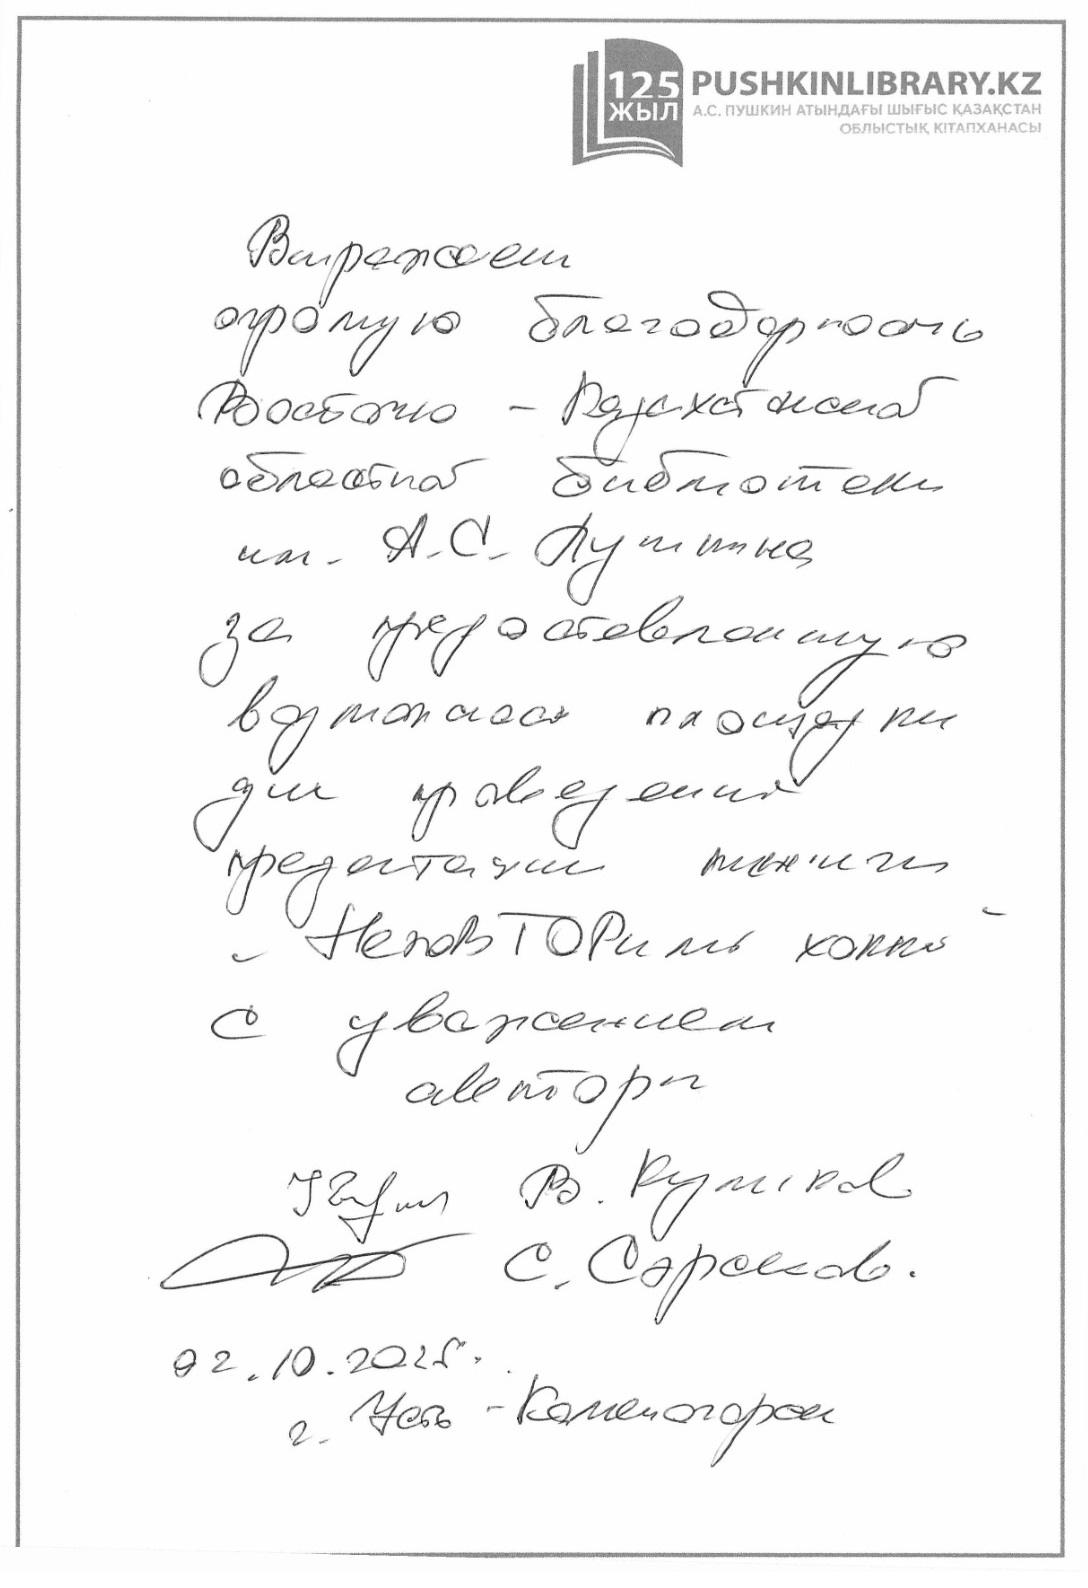 125
ЖЫЛ
PUSHKINLIBRARY.KZ
А.С. ПУШКИН АТЫНДАҒЫ ШЫҒЫС ҚАЗАҚСТАН
ОБЛЫСТЫҚ КІТАПХАНАСЫ
Выражаем
огромную благодарность
Восточно - Казахстанской
областной библиотеки
им. А.С. Пушкина
за предоставленную
возможность площадки
для проведения
презентации книги
"НеповТОРимый хоккей"
С уважением
авторы
В. Кулыков
С.
02.10.2025.
г. Усть - Каменогорск